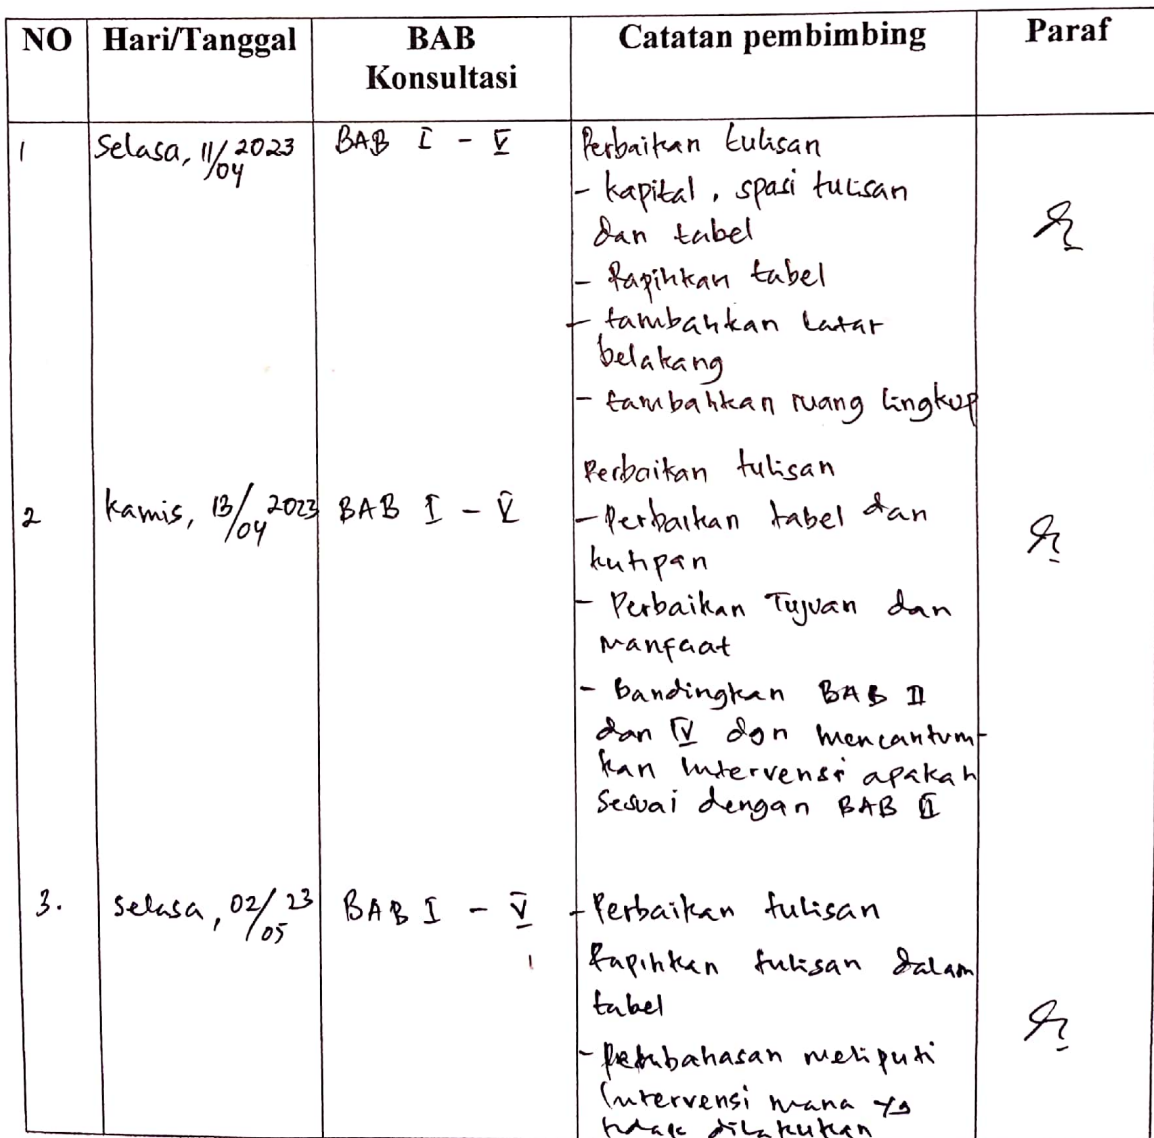 NO Hari/Tanggal BAB Catatan pembimbing Paraf
Konsultasi
1 Selasa, 11/04 2023 BAB I - V Perbaikan tulisan
- kapital, spasi tulisan
dan tabel
- Rapihkan tabel
- tambahkan Latar
belakang
- tambahkan ruang lingkup
Perbaikan tulisan
2 kamis, 13/04 2023 BAB I - V - Perbaikan tabel dan
kutipan
- Perbaikan Tujuan dan
Manfaat
- Bandingkan BAB II
dan IV dgn mencantum-
kan Intervensi apakah
Sesuai dengan BAB II
3. Selasa, 02/05 23 BAB I - V - Perbaikan tulisan
Rapihkan tulisan dalam
tabel
- Pembahasan meliputi
Intervensi mana yg
tidak dilakukan